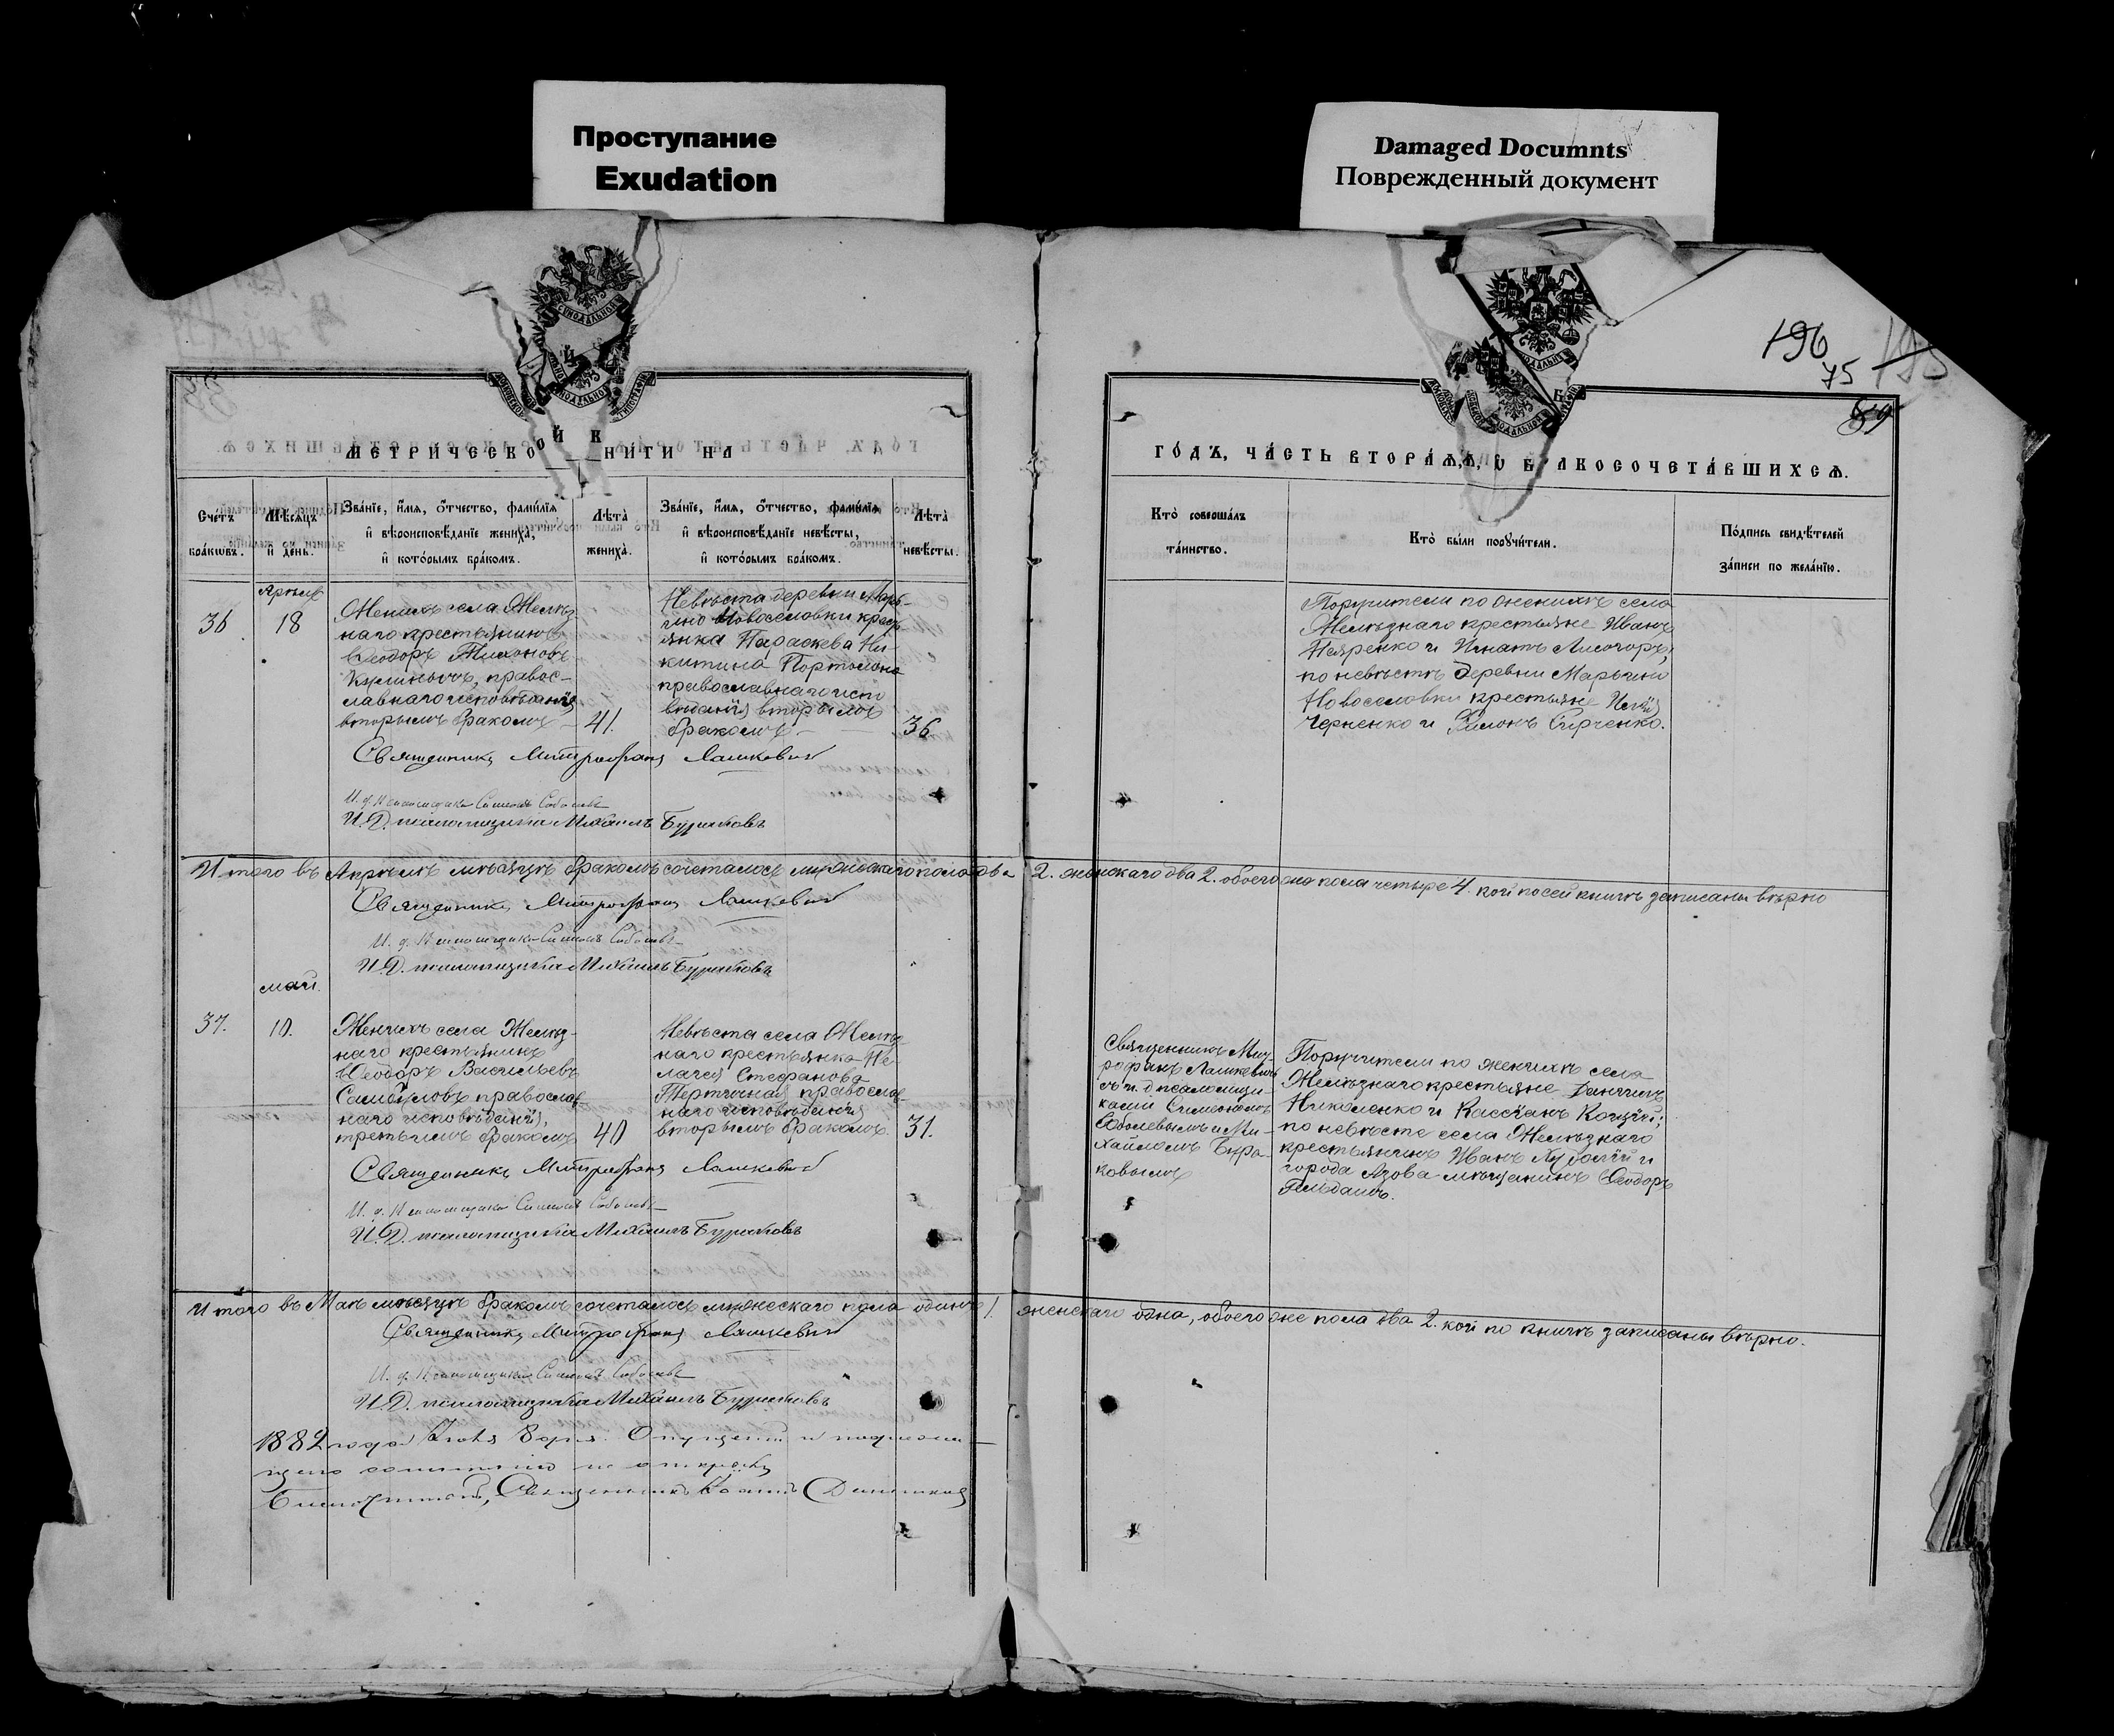 Проступание
Exudation
Damaged Documnts
Поврежденный документ
196
75
195
89
МЕТРИЧЕСКОЙ КНИГИ НА
ГО́ДЪ, ЧА́СТЬ ВТОРА́Ѧ, О БРАКОСОЧЕТА́ВШИХСѦ.
Счетъ бра́кѡвъ.
Мѣ́сѧцъ и҆ де́нь.
Зва́нїе, и҆́мѧ, ѻ҆́тчество, фамѝлїѧ
и҆ вѣроисповѣ́данїе жениха̀,
и҆ кото́рымъ бра́комъ.
Лѣ́та жениха̀.
Зва́нїе, и҆́мѧ, ѻ҆́тчество, фамѝлїѧ
и҆ вѣроисповѣ́данїе невѣ́сты,
и҆ кото́рымъ бра́комъ.
Лѣ́та невѣ́сты.
Кто̀ соверша́лъ
та́инство.
Кто̀ бы́ли порꙋчи́тели.
По́дпись свидѣ́телей
за́писи по жела́нїю.
Апрель
36
18
Женихъ села Желѣз-
наго крестьянинъ
Ѳеодоръ Тихоновъ
правос-
лавнаго исповѣданія
вторымъ бракомъ
41.
Невѣста деревни Марь-
ино Новоселовки крес-
янка Параскева Ни-
китина
православнаго испо
вѣданія вторымъ
бракомъ
36
Поручители по женихѣ села
Желѣзнаго крестьяне Иванъ
и Игнатъ Лисогоръ;
по невѣстѣ деревни Марьини
Новоселовки крестьяне
Черненко и
Священникъ Митрофанъ Лашкевичъ
И. д. псаломщика Симеонъ Соболевъ
И. Д. псаломщика Михаилъ Бураковъ
Итого въ Апрѣлѣ мѣсяцѣ бракомъ сочеталось мужескаго пола два 2. женскаго два 2. обоего же пола четыре 4. кои по сей книгѣ записаны вѣрно
Священникъ Митрофанъ Лашкевичъ
И. д. псаломщика Симеонъ Соболевъ
И. Д. псаломщика Михаилъ Бураковъ
май.
37.
10.
Женихъ села Желѣз-
наго крестьянинъ
Ѳеодоръ Васильевъ
Самойловъ правосла
наго исповѣданія,
третьимъ бракомъ
40
Невѣста села Желѣз
наго крестьянка Пе-
лагея Стефанова
православ
наго исповѣданія
вторымъ бракомъ.
31.
Священникъ Мит-
рофанъ Лашкевичъ
съ и. д. псаломщи-
ками Симеономъ
Соболевымъ и Ми-
хаиломъ Бура-
ковымъ
Поручители по женихѣ села
Желѣзнаго крестьяне Даніилъ
Николенко и Кассіанъ
по невѣсте села Желѣзнаго
крестьянинъ Иванъ и
города Азова мѣщанинъ Ѳеодоръ
Священникъ Митрофанъ Лашкевичъ
И. д. псаломщика Симеонъ Соболевъ
И. Д. псаломщика Михаилъ Бураковъ
Итого въ Маѣ мѣсяцѣ бракомъ сочеталось мужескаго пола одинъ 1. женскаго одна, обоего же пола два 2. кои по книгѣ записаны вѣрно.
Священникъ Митрофанъ Лашкевичъ
И. д. псаломщика Симеонъ Соболевъ
И. Д. псаломщика Михаилъ Бураковъ
1882 года
Благочинный, Священникъ